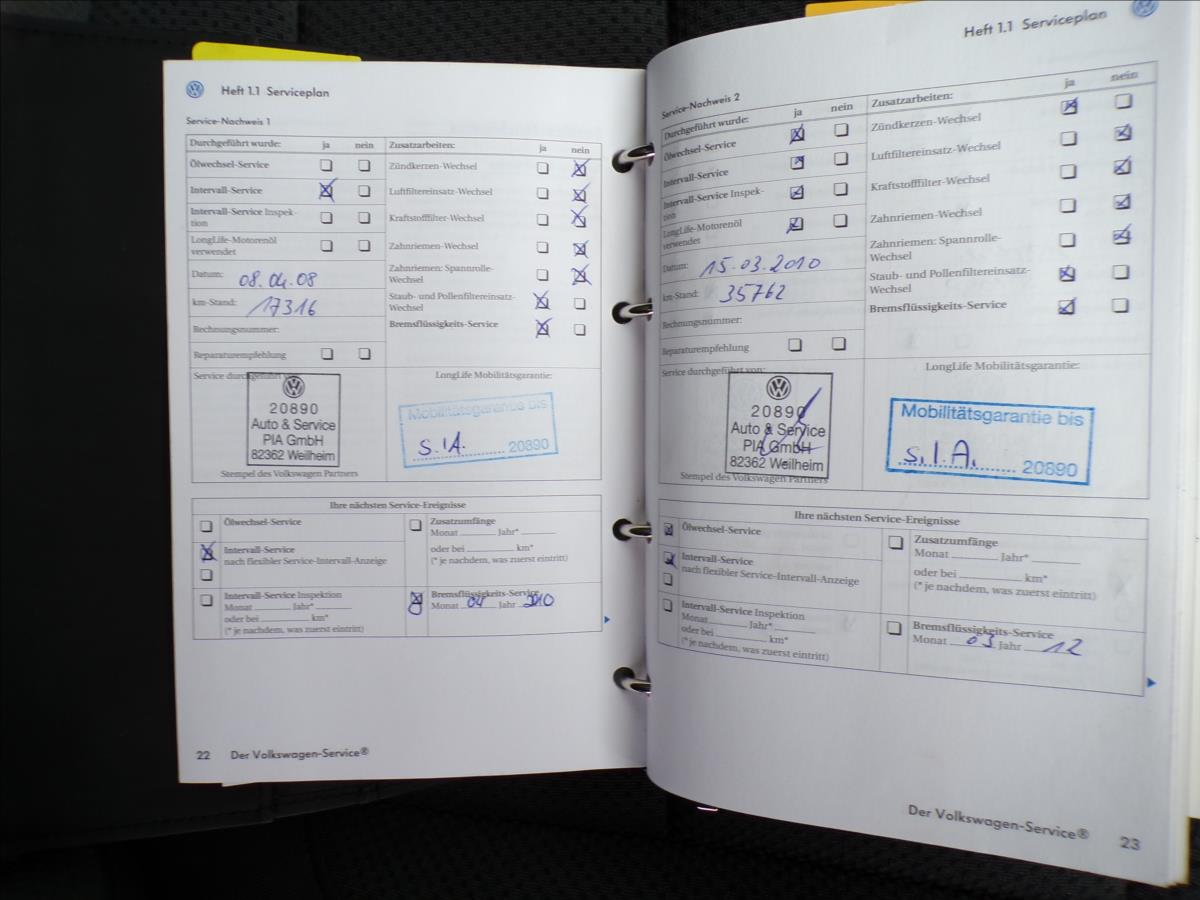 Heft 1.1 Serviceplan
Service-Nachweis 1
Durchgeführt wurde: ja nein
Ölwechsel-Service
Intervall-Service
Intervall-Service Inspek-
tion
LongLife-Motorenöl
verwendet
Datum: 08.04.08
km-Stand: 17316
Rechnungsnummer:
Reparaturempfehlung
Zusatzarbeiten: ja nein
Zündkerzen-Wechsel
Luftfiltereinsatz-Wechsel
Kraftstofffilter-Wechsel
Zahnriemen-Wechsel
Zahnriemen: Spannrolle-
Wechsel
Staub- und Pollenfiltereinsatz-
Wechsel
Bremsflüssigkeits-Service
Service durchgeführt
20890
Auto & Service
PIA GmbH
82362 Weilheim
Stempel des Volkswagen Partners
LongLife Mobilitätsgarantie:
Mobilitätsgarantie bis
S.I.A. 20890
Ihre nächsten Service-Ereignisse
Ölwechsel-Service
Intervall-Service
nach flexibler Service-Intervall-Anzeige
Intervall-Service Inspektion
Monat Jahr*
oder bei km*
(* je nachdem, was zuerst eintritt)
Zusatzumfänge
Monat Jahr*
oder bei km*
(* je nachdem, was zuerst eintritt)
Bremsflüssigkeits-Service
Monat 04 Jahr 2010
22 Der Volkswagen-Service®
Heft 1.1 Serviceplan
Service-Nachweis 2
Durchgeführt wurde: ja nein
Ölwechsel-Service
Intervall-Service
Intervall-Service Inspek-
tion
LongLife-Motorenöl
verwendet
Datum: 15.03.2010
km-Stand: 35762
Rechnungsnummer:
Reparaturempfehlung
Zusatzarbeiten: ja nein
Zündkerzen-Wechsel
Luftfiltereinsatz-Wechsel
Kraftstofffilter-Wechsel
Zahnriemen-Wechsel
Zahnriemen: Spannrolle-
Wechsel
Staub- und Pollenfiltereinsatz-
Wechsel
Bremsflüssigkeits-Service
Service durchgeführt von:
20890
Auto & Service
PIA GmbH
82362 Weilheim
Stempel des Volkswagen Partners
LongLife Mobilitätsgarantie:
Mobilitätsgarantie bis
S.I.A. 20890
Ihre nächsten Service-Ereignisse
Ölwechsel-Service
Intervall-Service
nach flexibler Service-Intervall-Anzeige
Intervall-Service Inspektion
Monat Jahr*
oder bei km*
(* je nachdem, was zuerst eintritt)
Zusatzumfänge
Monat Jahr*
oder bei km*
(* je nachdem, was zuerst eintritt)
Bremsflüssigkeits-Service
Monat 03 Jahr 12
Der Volkswagen-Service® 23